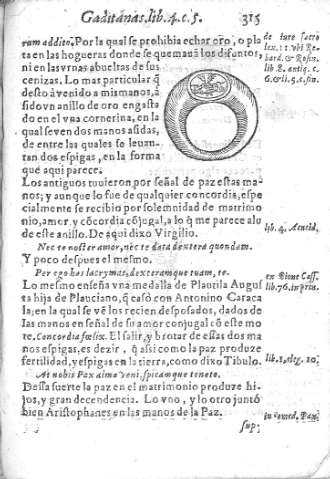 Gaditanas. lib. 4. c. 5. 315
rum addito. Por la qual se prohibia echar oro, o pla
ta en las hogueras donde se quemauã los difuntos,
ni en las vrnas abueltas de sus
cenizas. Lo mas particular q̃
desto à venido a mis manos, à
sido vn anillo de oro engasta
do en el vna cornerina, en la
qual se ven dos manos asidas,
de entre las quales se leuan-
tan dos espigas, en la forma
que aqui parece.
Los antiguos tuuieron por señal de paz estas ma
nos; y aunque lo fue de qualquier concordia, espe
cialmente se recibio por solemnidad de matrimo
nio, amor, y cõcordia cõjugal, a lo q̃ me parece alu
de este anillo. De aqui dixo Virgilio.
Nec te noster amor, nec te data dextera quondam.
Y poco despues el mesmo.
Per ego has lacrymas, dextramque tuam, te.
Lo mesmo enseña vna medalla de Plautila Augus
ta hija de Plauciano, q̃ casò con Antonino Caraca
la; en la qual se vẽ los recien desposados, dados de
las manos en señal de su amor conjugal cõ este mo
te. Concordia fœlix. El salir, y brotar de estas dos ma
nos espigas, es dezir, q̃ assi como la paz produce
fertilidad, y espigas en la tierra, como dixo Tibulo.
At nobis Pax alma veni, spicamque teneto.
Dessa suerte la paz en el matrimonio produze hi-
jos, y gran decendencia. Lo vno, y lo otro juntò
bien Aristophanes en las manos de la Paz.
sup;
de iure sacro
lex. 11. vbi Re
bard. & Rosin.
lib. 8. antiq. c.
6. & li. 5. c. fin.
lib. 4. Aeneid.
ex Dione Cass.
lib. 76. in prin.
lib. 1. eleg. 10.
in comed. Pax.